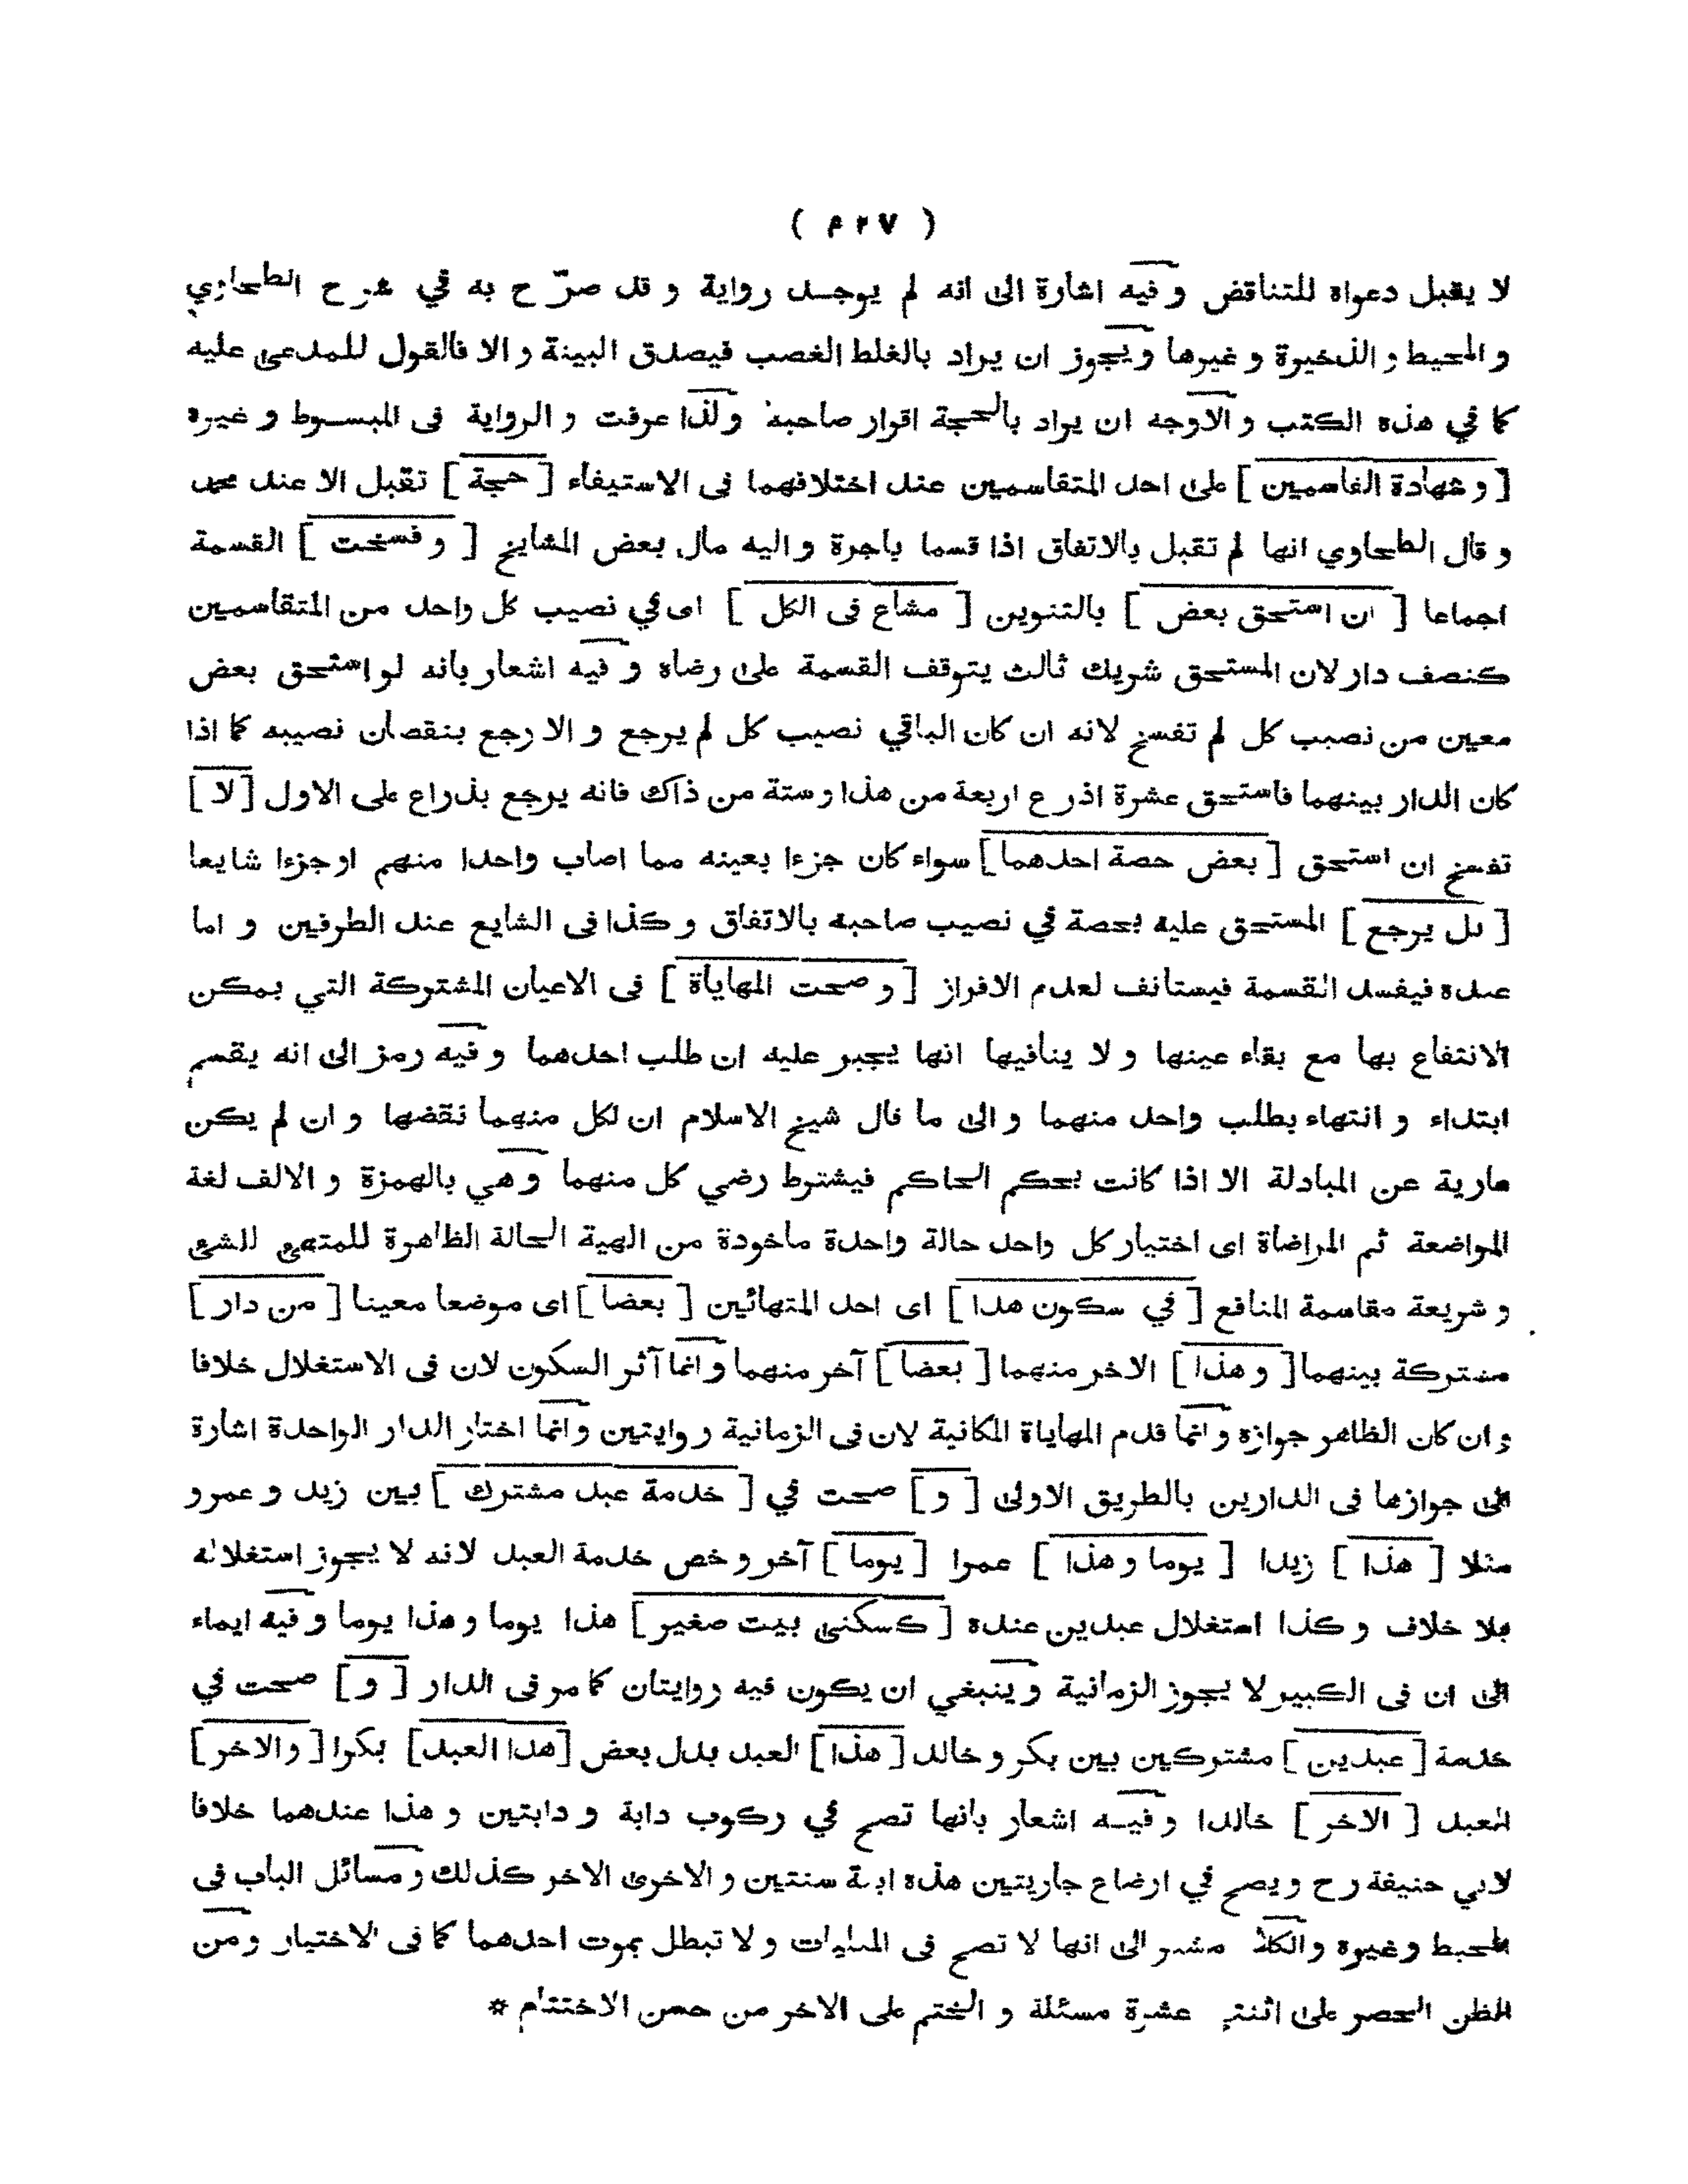 ( ٤٢٧ )
لا يقبل دعواه للتناقض و فيه اشارة الى انه لم يوجد رواية و قد صرّح به في شرح الطحاوي
و المحيط و الذخيرة و غيرها و يجوز ان يراد بالغلط الغصب فيصدق البينة و الا فالقول للمدعى عليه
كما في هذه الكتب و الاوجه ان يراد بالحجة اقرار صاحبه ولذا عرفت و الرواية فى المبسوط و غيره
[ و شهادة القاسمين ] على احد المتقاسمين عند اختلافهما فى الاستيفاء [ حجة ] تقبل الا عند محمد
و قال الطحاوي انها لم تقبل بالاتفاق اذا قسما باجرة و اليه مال بعض المشايخ [ و فسخت ] القسمة
اجماعا [ ان استحق بعض ] بالتنوين [ مشاع فى الكل ] اى في نصيب كل واحد من المتقاسمين
كنصف دار لان المستحق شريك ثالث يتوقف القسمة على رضاه و فيه اشعار بانه لو استحق بعض
معين من نصيب كل لم تفسخ لانه ان كان الباقي نصيب كل لم يرجع و الا رجع بنقصان نصيبه كما اذا
كان الدار بينهما فاستحق عشرة اذرع اربعة من هذا و ستة من ذاك فانه يرجع بذراع على الاول [ لا ]
تفسخ ان استحق [ بعض حصة احدهما ] سواء كان جزءا بعينه مما اصاب واحدا منهم او جزءا شايعا
[ بل يرجع ] المستحق عليه بحصة في نصيب صاحبه بالاتفاق و كذا فى الشايع عند الطرفين و اما
عنده فيفسد القسمة فيستانف لعدم الافراز [ و صحت المهاياة ] فى الاعيان المشتركة التي يمكن
الانتفاع بها مع بقاء عينها و لا ينافيها انها يجبر عليه ان طلب احدهما و فيه رمز الى انه يقسم
ابتداء و انتهاء بطلب واحد منهما و الى ما قال شيخ الاسلام ان لكل منهما نقضها و ان لم يكن
عارية عن المبادلة الا اذا كانت بحكم الحاكم فيشترط رضي كل منهما و هي بالهمزة و الالف لغة
المواضعة ثم المراضاة اى اختيار كل واحد حالة واحدة ماخوذة من الهية الحالة الظاهرة للمتهيئ للشئ
و شريعة مقاسمة المنافع [ في سكون هذا ] اى احد المتهائين [ بعضا ] اى موضعا معينا [ من دار ]
مشتركة بينهما [ و هذا ] الاخر منهما [ بعضا ] آخر منهما و انما آثر السكون لان فى الاستغلال خلافا
و ان كان الظاهر جوازه و انما قدم المهاياة المكانية لان فى الزمانية روايتين و انما اختار الدار الواحدة اشارة
الى جوازها فى الدارين بالطريق الاولى [ و ] صحت في [ خدمة عبد مشترك ] بين زيد و عمرو
مثلا [ هذا ] زيدا [ يوما و هذا ] عمرا [ يوما ] آخر و خص خدمة العبد لانه لا يجوز استغلاله
بلا خلاف و كذا استغلال عبدين عنده [ كسكنى بيت صغير ] هذا يوما و هذا يوما و فيه ايماء
الى ان فى الكبير لا يجوز الزمانية و ينبغي ان يكون فيه روايتان كما مر فى الدار [ و ] صحت في
خدمة [ عبدين ] مشتركين بين بكر و خالد [ هذا ] العبد بدل بعض [ هذا العبد ] بكرا [ والاخر ]
العبد [ الاخر ] خالدا و فيه اشعار بانها تصح في ركوب دابة و دابتين و هذا عندهما خلافا
لابي حنيفة رح و يصح في ارضاع جاريتين هذه ابنه سنتين و الاخرى الاخر كذلك و مسائل الباب فى
المحيط و غيره و الكلا مشير الى انها لا تصح فى المثليات و لا تبطل بموت احدهما كما فى الاختيار و من
الظن الحصر على اثنتي عشرة مسئلة و الختم على الاخر من حسن الاختتام *